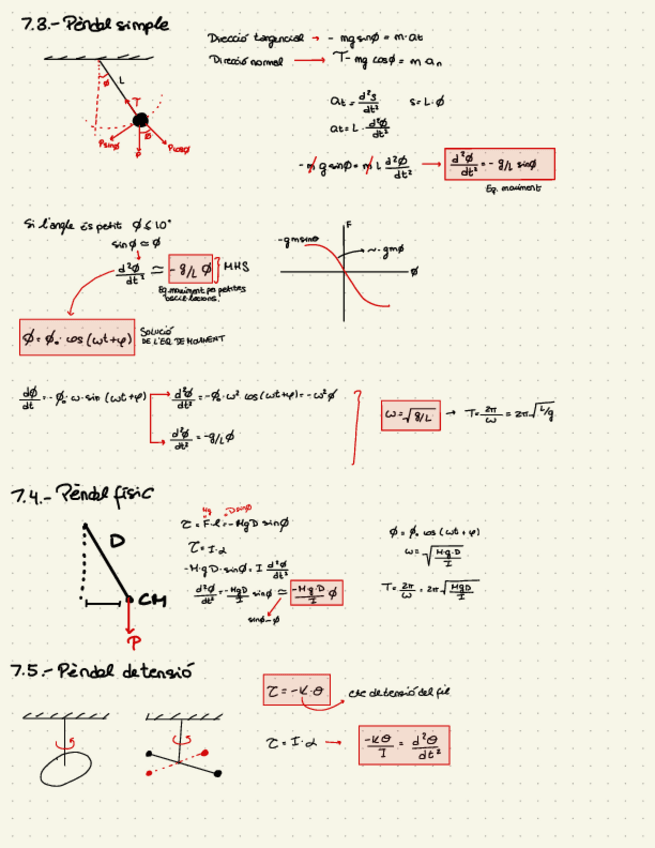 7.3.- Pèndol simple
Direcció tangencial → - mg sinø = m·at
Direcció normal → T - mg cosø = m an
ø
L
T
ø
Psinø
P
Pcosø
at = d²s/dt²   s = L·ø
at = L· d²ø/dt²
-m g sinø = m L d²ø/dt² → d²ø/dt² = - g/L sinø
Eq. moviment
Si l'angle és petit ø ≤ 10°
sinø ≃ ø
d²ø/dt² ≃ - g/L ø } MHS
Eq. moviment per petites
oscil·lacions!
F
-gmsinø
~-gmø
ø
ø = ø₀· cos (ωt+φ)
SOLUCIÓ
DE L'EQ DE MOVIMENT
dø/dt = -ø₀·ω·sin (ωt+φ) → d²ø/dt² = -ø₀·ω² cos(ωt+φ) = -ω²ø
d²ø/dt² = -g/L ø
ω = √g/L → T = 2π/ω = 2π√L/g
7.4.- Pèndol físic
D
CM
P
Mg   Dsinø
τ = F·l = -MgD sinø
τ = I·α
-M·g D·sinø = I d²ø/dt²
d²ø/dt² = -MgD/I sinø ≃ -M·g D/I ø
sinø~ø
ø = ø₀ cos (ωt+φ)
ω = √M·g·D/I
T = 2π/ω = 2π√MgD/I
7.5.- Pèndol de tensió
τ = -K·θ
cte de tensió del fil
τ = I·α → -Kθ/I = d²θ/dt²